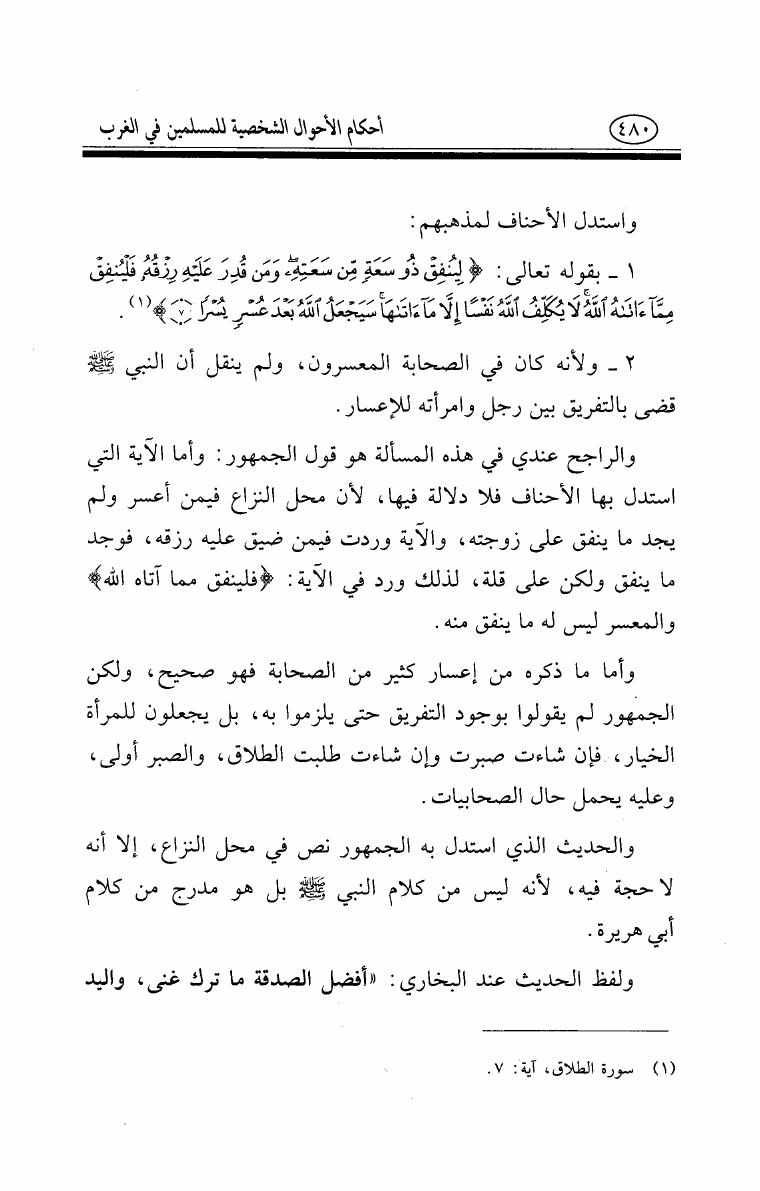 ٤٨٠ أحكام الأحوال الشخصية للمسلمين في الغرب
واستدل الأحناف لمذهبهم:
١ ـ بقوله تعالى: ﴿لِيُنفِقْ ذُو سَعَةٍ مِّن سَعَتِهِۦۖ وَمَن قُدِرَ عَلَيْهِ رِزْقُهُۥ فَلْيُنفِقْ
مِمَّآ ءَاتَىٰهُ ٱللَّهُۚ لَا يُكَلِّفُ ٱللَّهُ نَفْسًا إِلَّا مَآ ءَاتَىٰهَاۚ سَيَجْعَلُ ٱللَّهُ بَعْدَ عُسْرٍ يُسْرًا ٧﴾(١).
٢ ـ ولأنه كان في الصحابة المعسرون، ولم ينقل أن النبي ﷺ
قضى بالتفريق بين رجل وامرأته للإعسار.
والراجح عندي في هذه المسألة هو قول الجمهور: وأما الآية التي
استدل بها الأحناف فلا دلالة فيها، لأن محل النزاع فيمن أعسر ولم
يجد ما ينفق على زوجته، والآية وردت فيمن ضيق عليه رزقه، فوجد
ما ينفق ولكن على قلة، لذلك ورد في الآية: ﴿فلينفق مما آتاه الله﴾
والمعسر ليس له ما ينفق منه.
وأما ما ذكره من إعسار كثير من الصحابة فهو صحيح، ولكن
الجمهور لم يقولوا بوجود التفريق حتى يلزموا به، بل يجعلون للمرأة
الخيار، فإن شاءت صبرت وإن شاءت طلبت الطلاق، والصبر أولى،
وعليه يحمل حال الصحابيات.
والحديث الذي استدل به الجمهور نص في محل النزاع، إلا أنه
لا حجة فيه، لأنه ليس من كلام النبي ﷺ بل هو مدرج من كلام
أبي هريرة.
ولفظ الحديث عند البخاري: «أفضل الصدقة ما ترك غنى، واليد
(١) سورة الطلاق، آية: ٧.